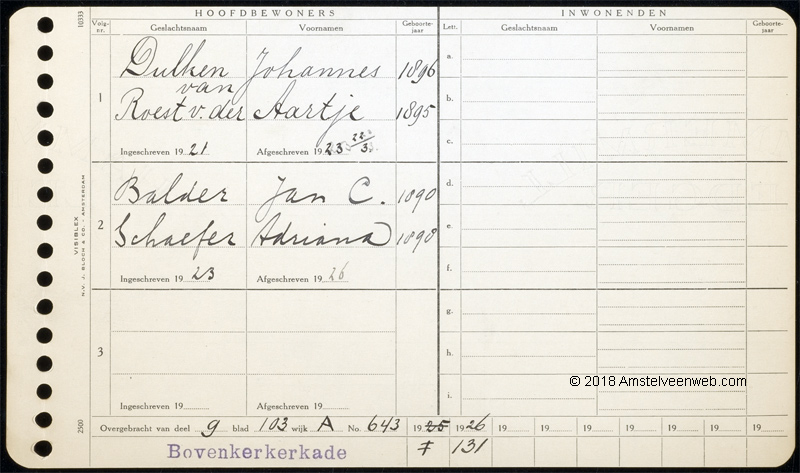 HOOFDBEWONERS INWONENDEN
Volg-nr. Geslachtsnaam Voornamen Geboorte-jaar Letr. Geslachtsnaam Voornamen Geboorte-jaar
10333
1
Dulken van Johannes 1896
Roest v. der Aartje 1895
Ingeschreven 1921 Afgeschreven 1923 22/3
2
Balder Jan C. 1890
Schaefer Adriana 1898
Ingeschreven 1923 Afgeschreven 1926
3
Ingeschreven 19 Afgeschreven 19
a.
b.
c.
d.
e.
f.
g.
h.
i.
VISIBLEX
N.V. J. BLOCH & CO. - AMSTERDAM
2500
© 2018 Amstelveenweb.com
Overgebracht van deel g blad 103 wijk A No. 643 1925 1926 19 19 19 19 19 19
Bovenkerkerkade F 131